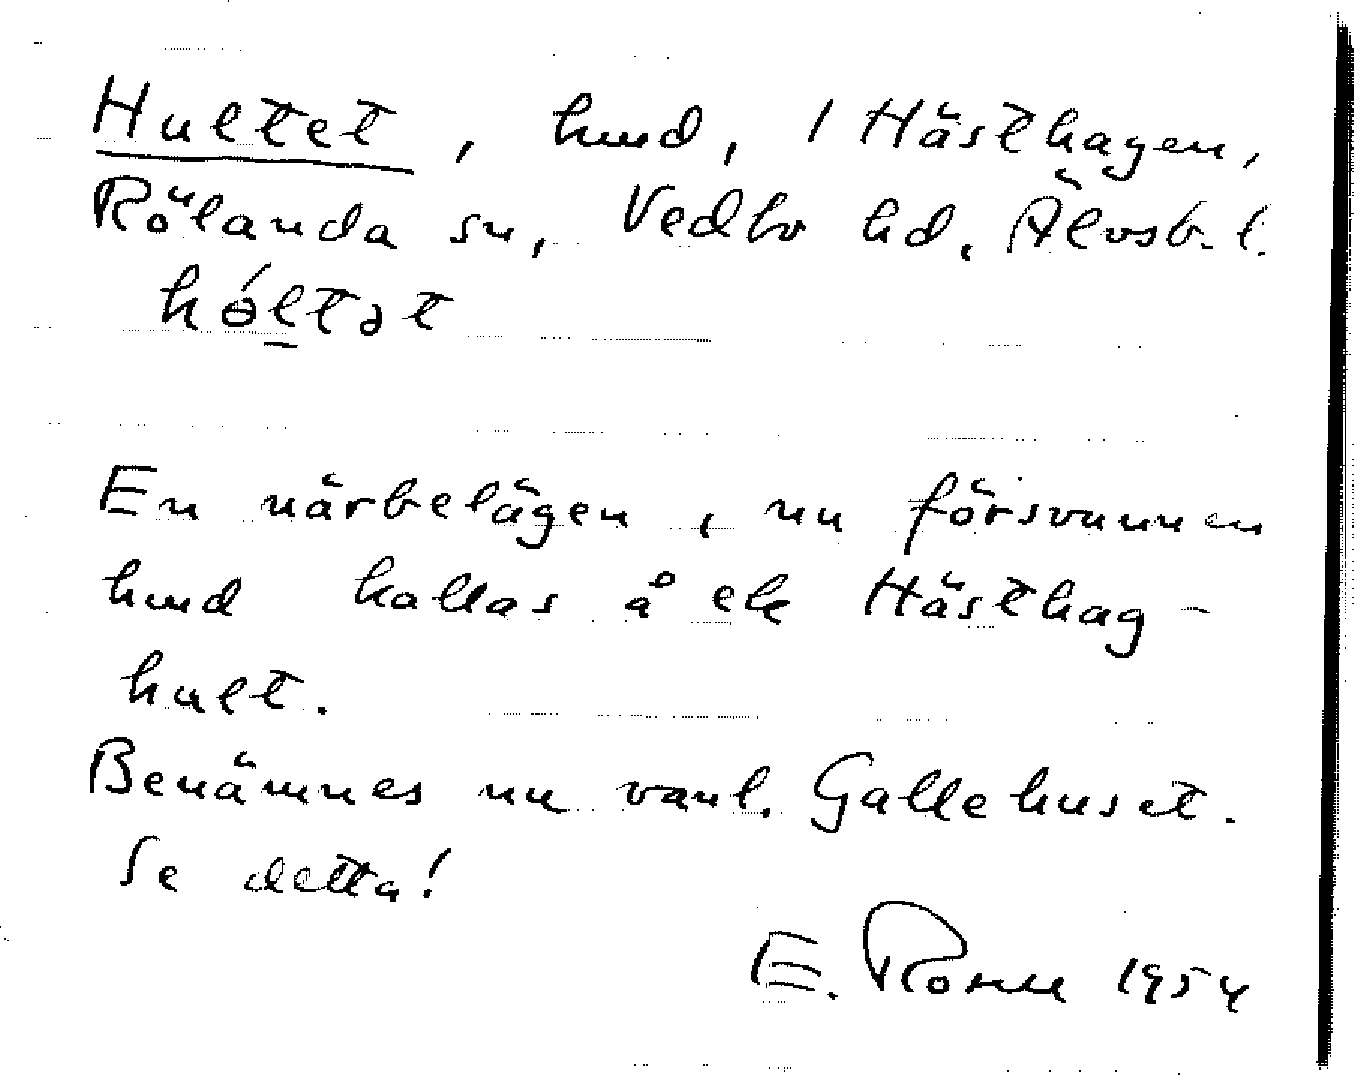 Hultet, hmd, 1 Hästhagen,
Rölanda sn, Vedbo hd, Älvsb. l.
hóltət
En närbelägen, nu försvunnen
hmd kallas å ek Hästhag-
hult.
Benämnes nu vanl. Gallehuset.
Se detta!
E. 1954